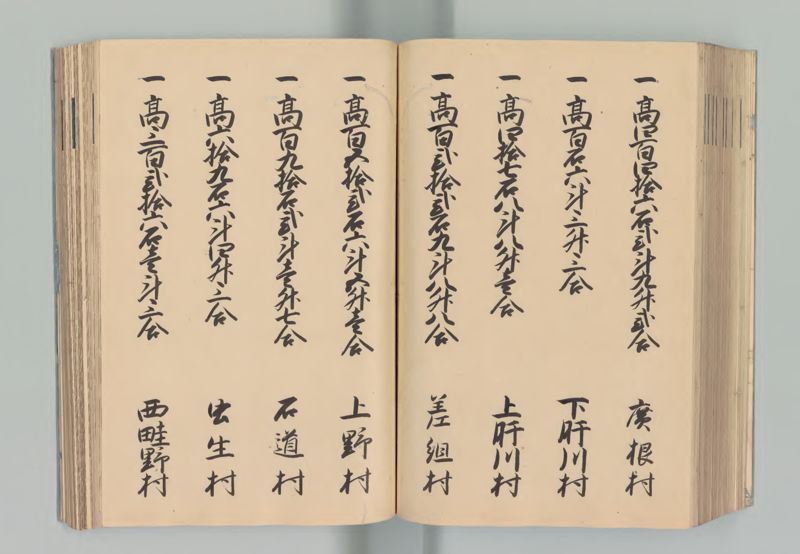 一 高四百四拾六石弐斗九升弐合 廣根村
一 高百石六斗三升三合 下肝川村
一 高四拾七石八斗八升壱合 上肝川村
一 高百弐拾弐石九斗八升八合 差組村
一 高百五拾弐石六斗五升壱合 上野村
一 高百九拾石弐斗壱升七合 石道村
一 高六拾九石六斗四升三合 虫生村
一 高三百弐拾六石壱斗三合 西畦野村